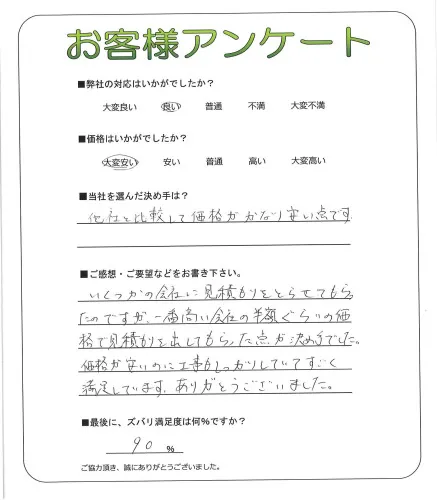 お客様アンケート
■弊社の対応はいかがでしたか？
大変良い 良い 普通 不満 大変不満
■価格はいかがでしたか？
大変安い 安い 普通 高い 大変高い
■当社を選んだ決め手は？
他社と比較して価格がかなり安い点です.
■ご感想・ご要望などをお書き下さい。
いくつかの会社に見積もりをとらせてもらっ
たのですが、一番高い会社の半額ぐらいの価
格で見積もりを出してもらった点が決め手でした。
価格が安いのに工事もしっかりしていてすごく
満足しています。ありがとうございました。
■最後に、ズバリ満足度は何%ですか？
90 %
ご協力頂き、誠にありがとうございました。